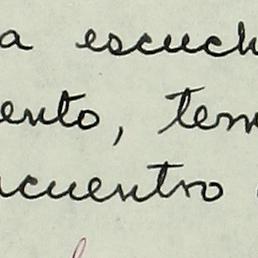 a escuch
ento, tem
ncuentro